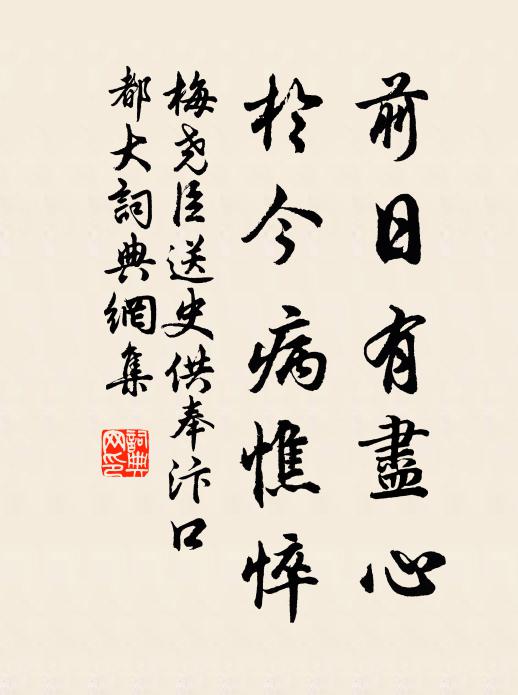 前日有盡心
於今病憔悴
梅堯臣送史供奉汴口
都大詞典網集
詞典網印